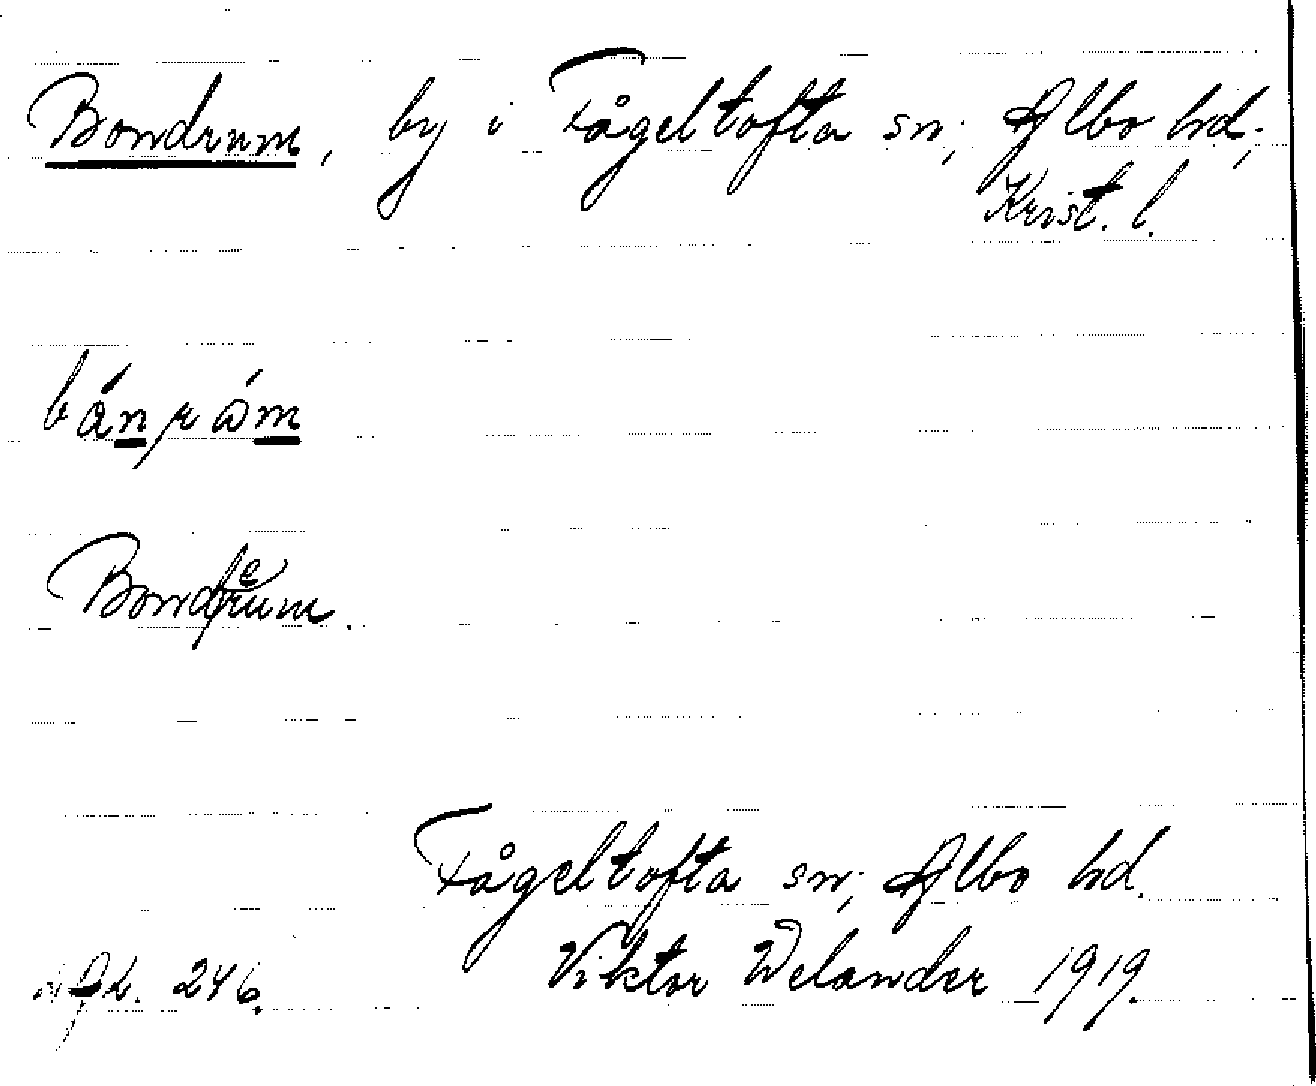 Bondrum, by i Fågeltofta sn; Albo hd;
Krist. l.
bánrám
Bondrum.
Fågeltofta sn; Albo hd.
246. Viktor Welander 1919.